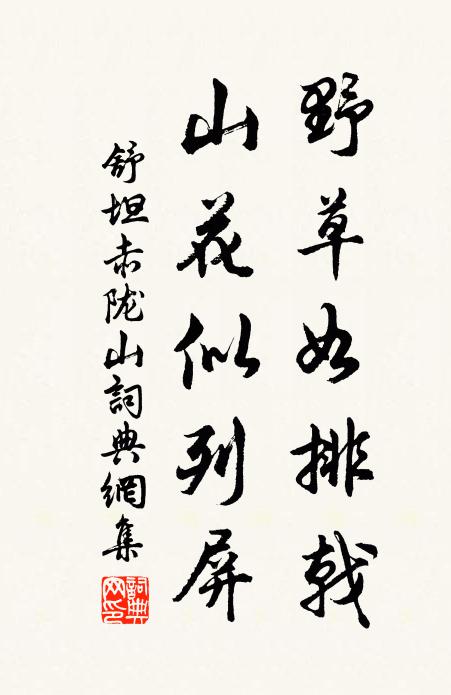 野草如排戟
山花似列屏
舒坦赤陇山詞典網集
詞典网印